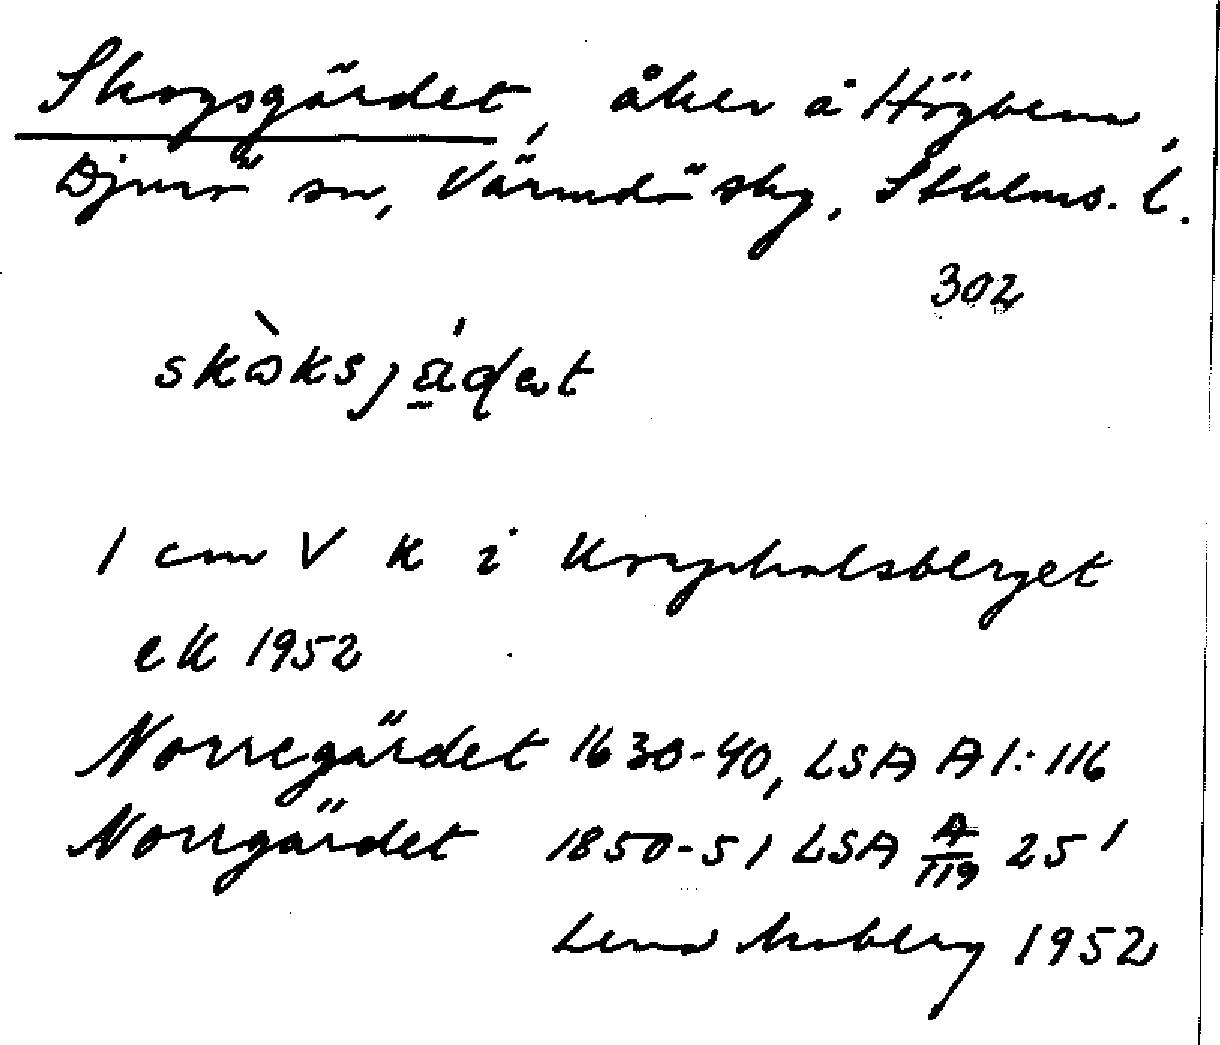 Skogsgärdet, åker å Högbena,
Djurö sn, Värmdö skg, Sthlms. l.
302
skòksjä́dat
1 cm V K i Korpholsberget
eK 1952
Norregärdet 1630-40, LSA A1:116
Norrgärdet 1850-51 LSA A/119 25'
Lena Moberg 1952